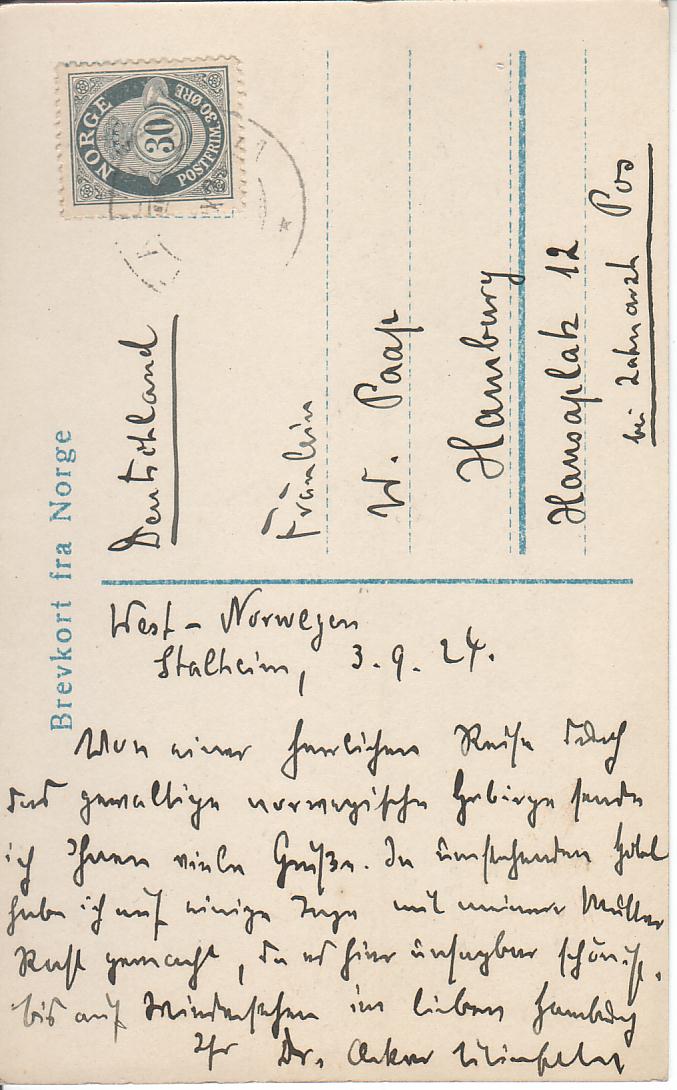 Brevkort fra Norge
NORGE
30
POSTFRIM. 30 ØRE
Deutschland
Fräulein
W. Paap
Hamburg
Hansaplatz 12
bei Zahnarzt Pos
West-Norwegen
Stalheim, 3.9.24.
Von einer herrlichen Reise durch
das gewaltige norwegische Gebirge sende
ich Ihnen viele Grüße. Im umstehenden Hotel
habe ich auf einige Tage mit meiner Mutter
Rast gemacht, da es hier unsagbar schön ist.
bis auf Wiedersehen im lieben Hamburg
Ihr Dr. Oskar